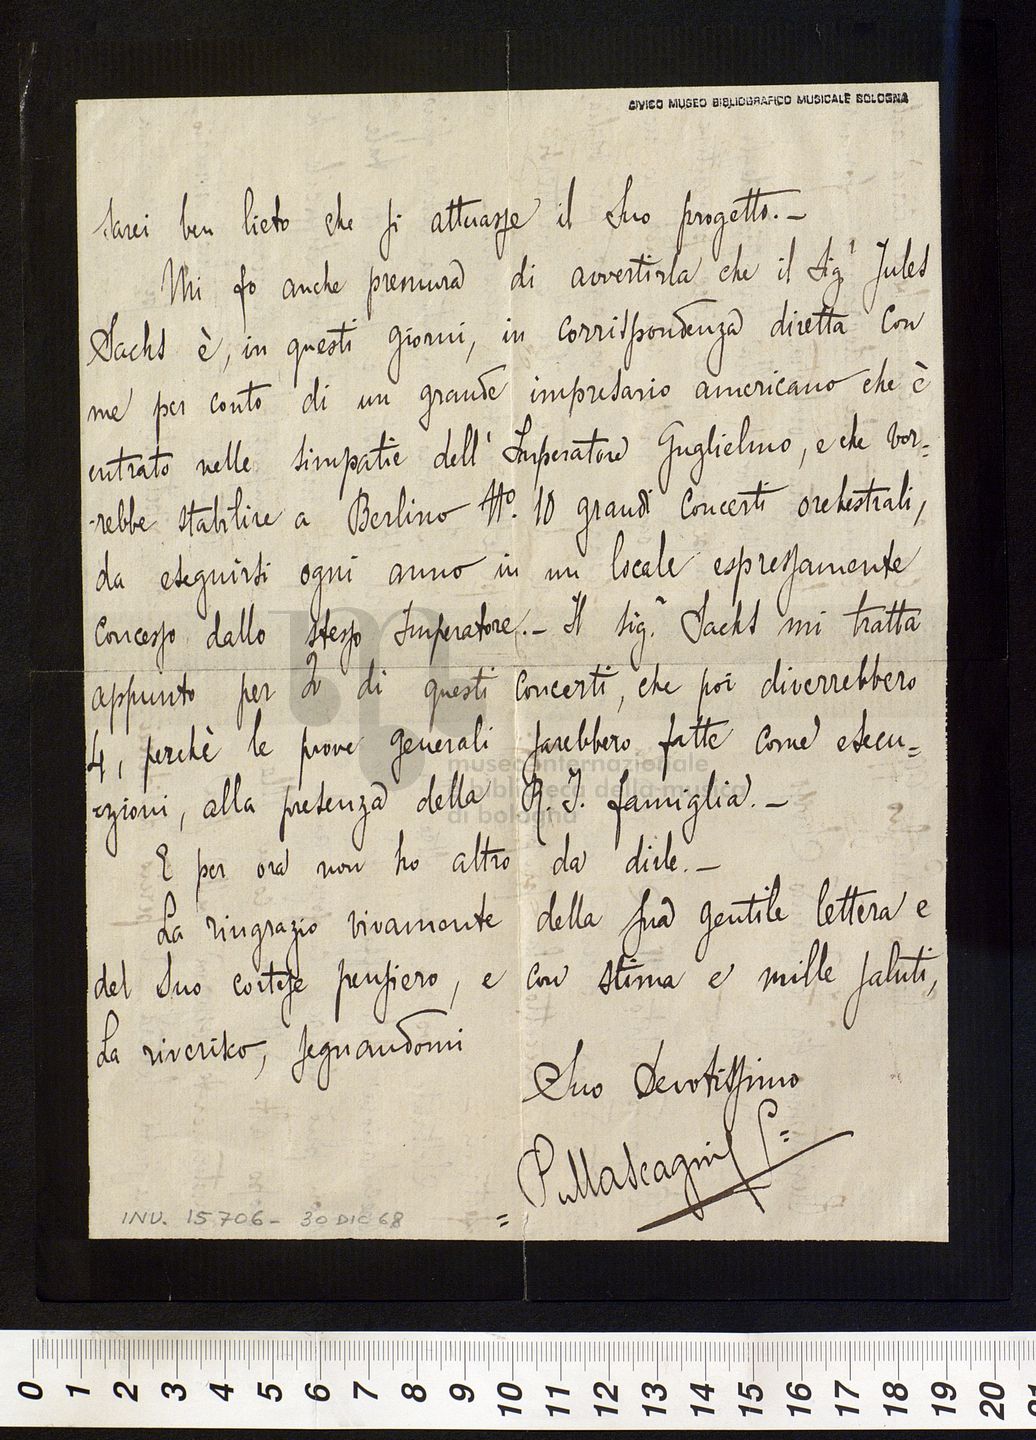 CIVICO MUSEO BIBLIOGRAFICO MUSICALE BOLOGNA
sarei ben lieto che si attuasse il Suo progetto.—
Mi fo anche premura di avvertirla che il Sig.r Jules
Sachs è, in questi giorni, in corrispondenza diretta con
me per conto di un grande impresario americano che è
entrato nelle simpatie dell'Imperatore Guglielmo, e che vor=
-rebbe stabilire a Berlino No. 10 grandi Concerti orchestrali,
da eseguirsi ogni anno in un locale espressamente
concesso dallo stesso Imperatore.— Il Sig.r Sachs mi tratta
appunto per 2 di questi Concerti, che poi diverrebbero
4, perchè le prove generali sarebbero fatte come esecu=
=zioni, alla presenza della R. I. famiglia.—
E per ora non ho altro da dirle.—
La ringrazio vivamente della Sua gentile lettera e
del Suo cortese pensiero, e con stima e mille saluti,
La riverisco, segnandomi
Suo Devotissimo
P. Mascagni
museo internazionale
e biblioteca della musica
di bologna
INV. 15706 - 30 DIC 68
0 1 2 3 4 5 6 7 8 9 10 11 12 13 14 15 16 17 18 19 20 21